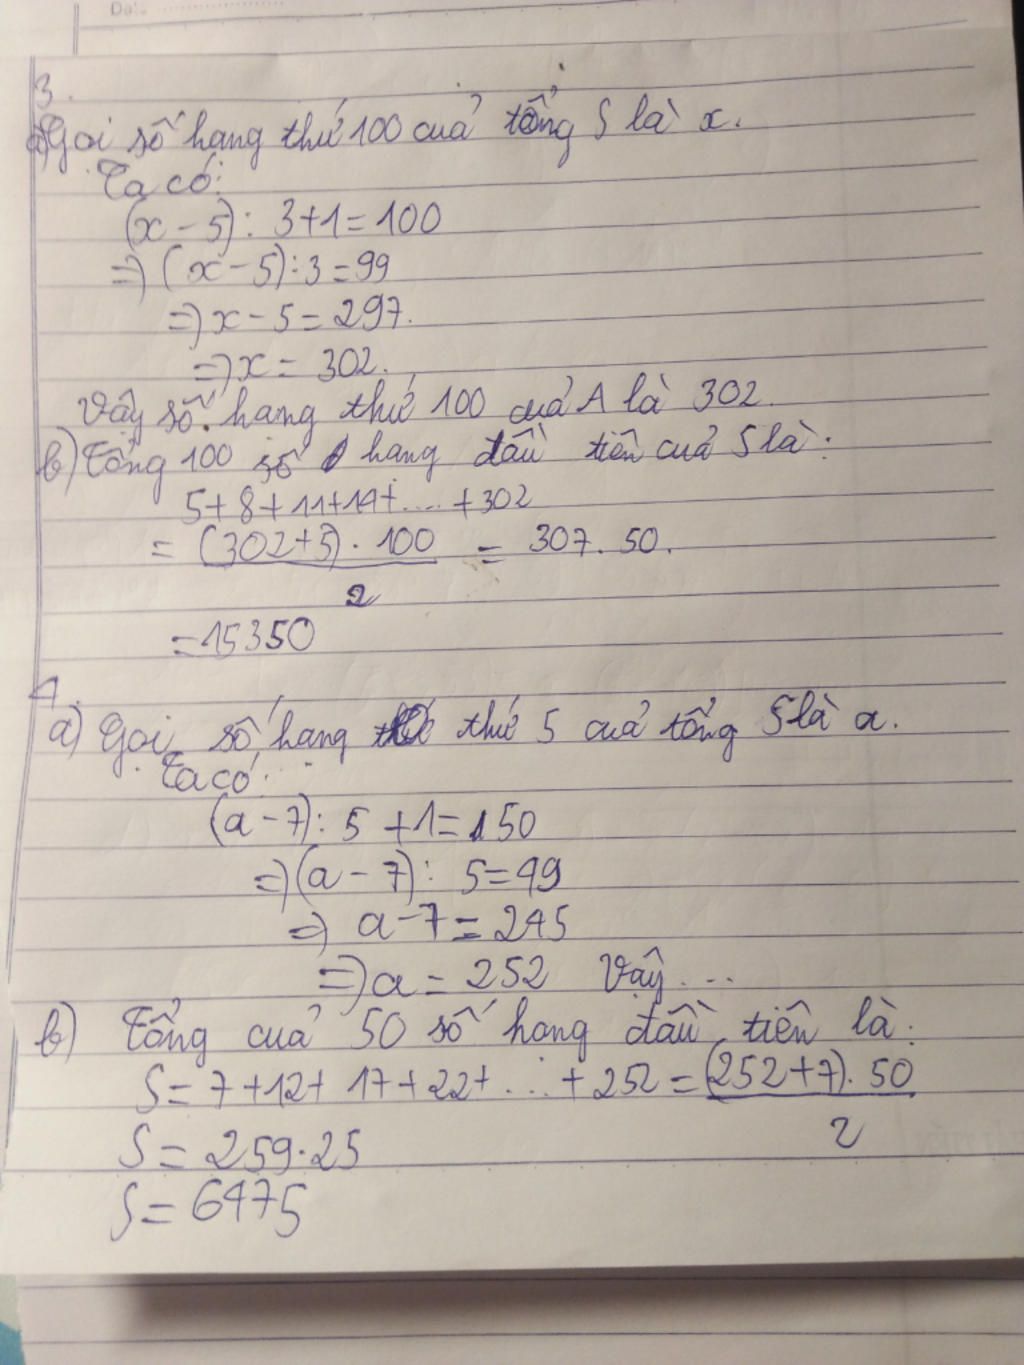 Date
3.
a) Gọi số hạng thứ 100 của tổng S là x.
Ta có:
(x - 5) : 3 + 1 = 100
=> (x - 5) : 3 = 99
=> x - 5 = 297.
=> x = 302.
Vậy số hạng thứ 100 của A là 302.
b) Tổng 100 số hạng đầu tiên của S là:
5 + 8 + 11 + 14 + .... + 302
= (302 + 5) . 100 / 2 = 307 . 50.
= 15350
4.
a) Gọi số hạng thứ 5 của tổng S là a.
Ta có:
(a - 7) : 5 + 1 = 50
=> (a - 7) : 5 = 49
=> a - 7 = 245
=> a = 252 Vậy ...
b) Tổng của 50 số hạng đầu tiên là:
S = 7 + 12 + 17 + 22 + ... + 252 = (252 + 7) . 50 / 2
S = 259 . 25
S = 6475